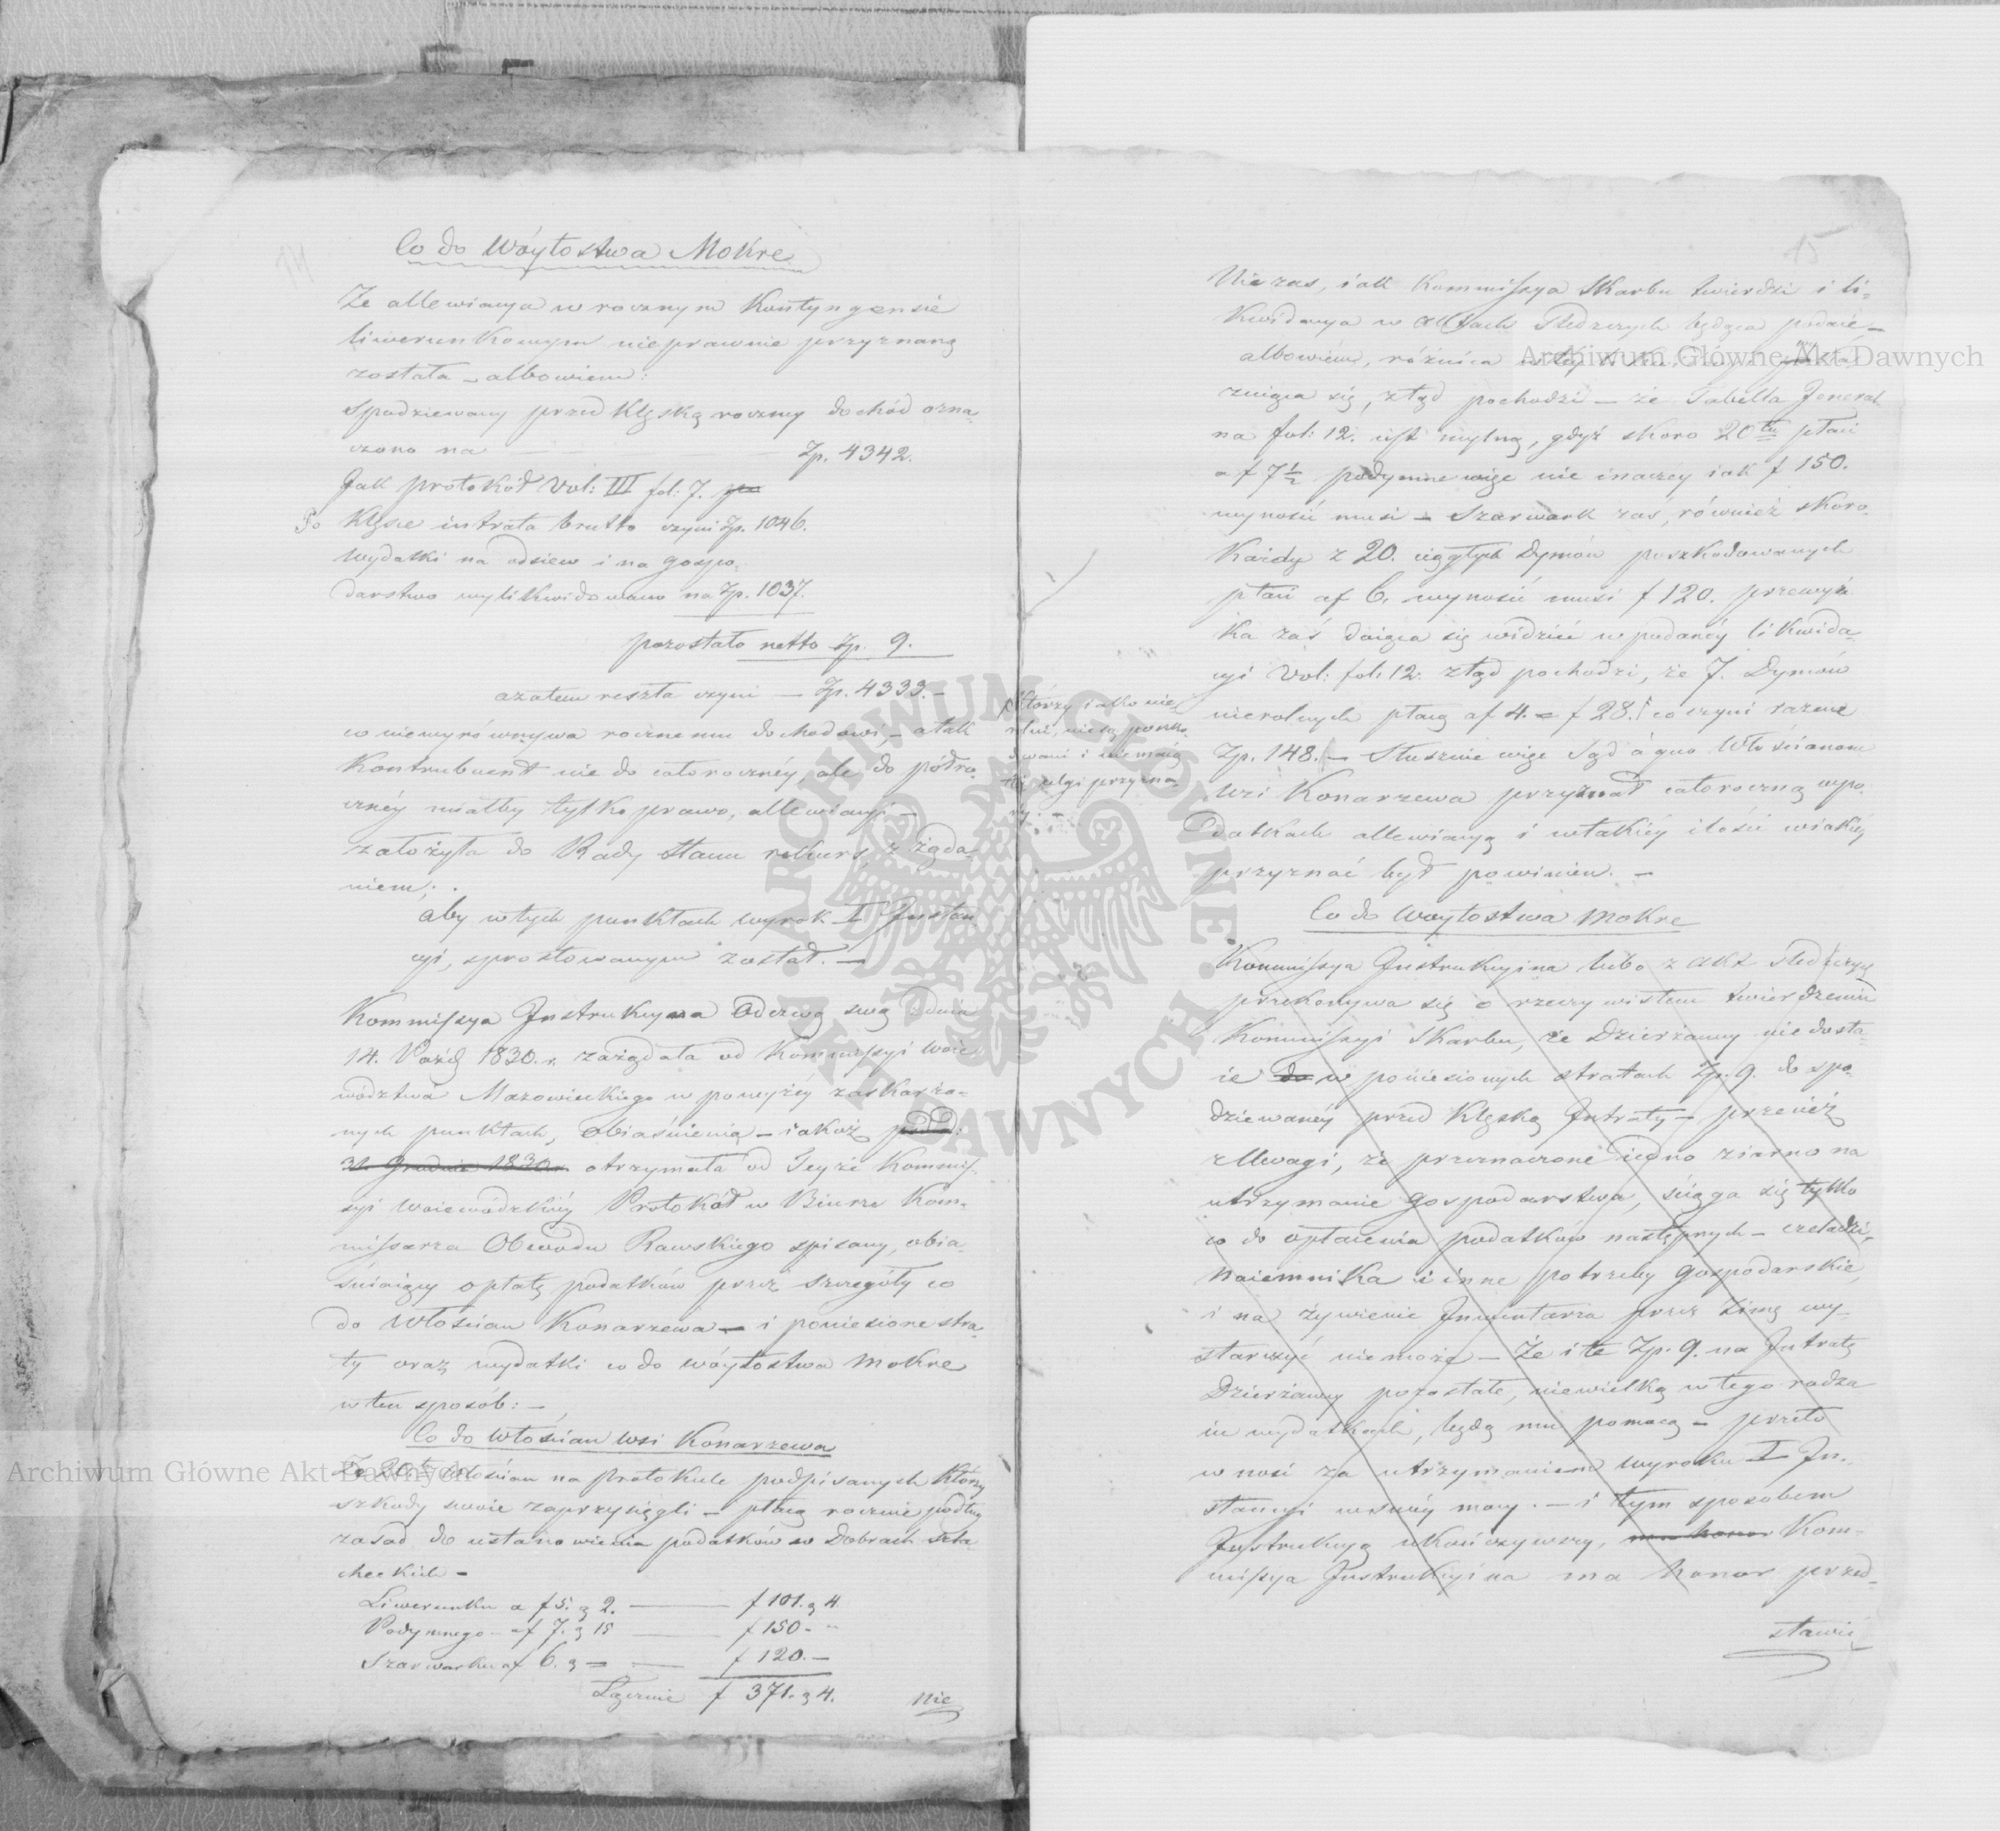 14
Co do Wóytostwa Mokre
Że allewiacya w rocznym Kontyngensie
liwerunkowym nieprawnie przyznaną
została – albowiem:
Spodziewany przed klęską roczny dochód ozna-
czono na — Zp. 4342.
Jak protokół Vol: III fol: 7.
Po klęsce intrata brutto czyni Zp. 1046.
Wydatki na odsiew i na gospo-
darstwo wylikwidowano na Zp. 1037.
pozostało netto Zp. 9.
a zatem reszta czyni — Zp. 4333. –
co niewyrównywa rocznemu dochodowi, – a tak
Kontrubuent nie do całorocznéy, ale do półro-
cznéy miałby tylko prawo, allewiacyi –
założyła do Rady Stanu rekurs, z żąda-
niem;
aby w tych punktach wyrok I Instan-
cyi, sprostowanym został. –
Kommissya Instrukcyina Odezwą swą z dnia
14. Paźd 1830. r. zażądała od Kommissyi Woie-
wództwa Mazowieckiego w powyżéy zaskarżo-
nych punktach, obiaśnienia – iakoż
31. Grudnia 1830 r. otrzymała od Teyże Kommis-
syi Woiewódzkiéy Protokół w Biurze Kom-
missarza Obwodu Rawskiego spisany, obia-
śniaiący opłatę podatków przez szczegóły co
do Włościan Konarzewa – i poniesione stra-
ty oraz wydatki co do wóytostwa Mokre
w ten sposób: –
Co do włościan wsi Konarzewa
Że 20tu włościan na Protokule podpisanych którzy
szkody swoie zaprzysięgli – płacą rocznie podług
zasad do ustanowienia podatków w Dobrach szla-
checkich –
Liwerunku a f 5. g 2. — f 101. g 4
Podymnego – af 7. g 15 — f 150 –
Szarwarku af 6. g — f 120. –
Łącznie f 371. g 4.
Nie
15
Nie zaś, iak Kommissya Skarbu twierdzi i li-
kwidacya w aktach śledczych będąca podaie –
albowiem, różnica w téy
znaiąca się, ztąd pochodzi – że Tabella Jeneral
na fol: 12. iest mylną, gdyż skoro 20tu płaci
a f 7½ podymne więc nie inaczéy iak f 150.
wynosić musi – Szarwark zaś, również skoro
każdy z 20. ciągłych Dymów poszkodowanych
płaci af 6, wynosić musi f 120. przewyż-
ka zaś daiąca się widzieć w podanéy likwida-
cyi Vol: fol: 12. ztąd pochodzi, że 7. Dymów
nierolnych płacą af 4. = f 28. co czyni razem
którzy iako nie-
rolni, nie są poszko-
dowani i nie maią
ulgi przyzna-
Zp. 148. – Słusznie więc Sąd a quo Włościanom
wsi Konarzewa przyznał całoroczną w po-
datkach allewiacyą i w takiéy ilości w iakiéy
przyznać był powinien. –
Co do Woytostwa Mokre
Kommissya Instrukcyina lubo z akt śledczych
przekonywa się o rzeczywistem twierdzeniu
Kommissyi Skarbu, że Dzierżawcy niedosta-
ie do w poniesionych stratach Zp. 9. do spo-
dziewanéy przed klęską Intraty – przecież
z uwagi, że przeznaczone iedno ziarno na
utrzymanie gospodarstwa, ściąga się tylko
co do opłacenia podatków następnych – czeladzi,
naiemnika i inne potrzeby gospodarskie,
i na żywienie Inwentarza przez zimę wy-
starczyć nie może – Że i te Zp. 9. na Intratę
Dzierżawcy pozostałe, niewielką w tego rodza-
iu wydatkach, będą mu pomocą – przeto
wnosi za utrzymaniem wyroku I In-
stancyi w swéy mocy. – i tym sposobem
Instrukcyą ukończywszy, ma honor Kom-
missya Instrukcyina ma honor przed-
stawić
Archiwum Główne Akt Dawnych
Archiwum Główne Akt Dawnych
ARCHIWUM GŁÓWNE AKT DAWNYCH